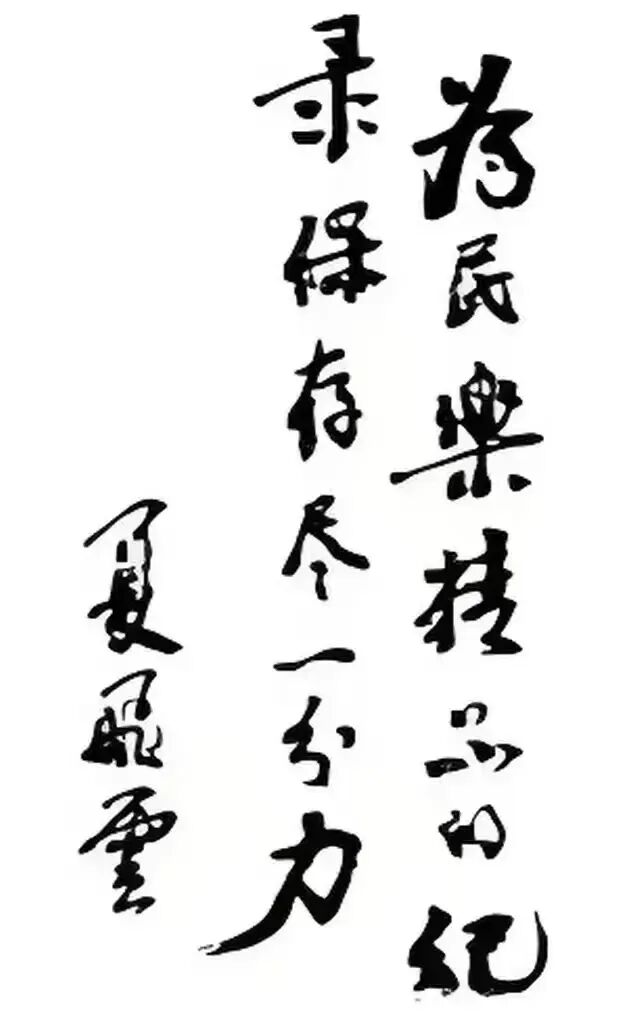 为民樂精品的纪
录保存尽一分力
夏飛雲